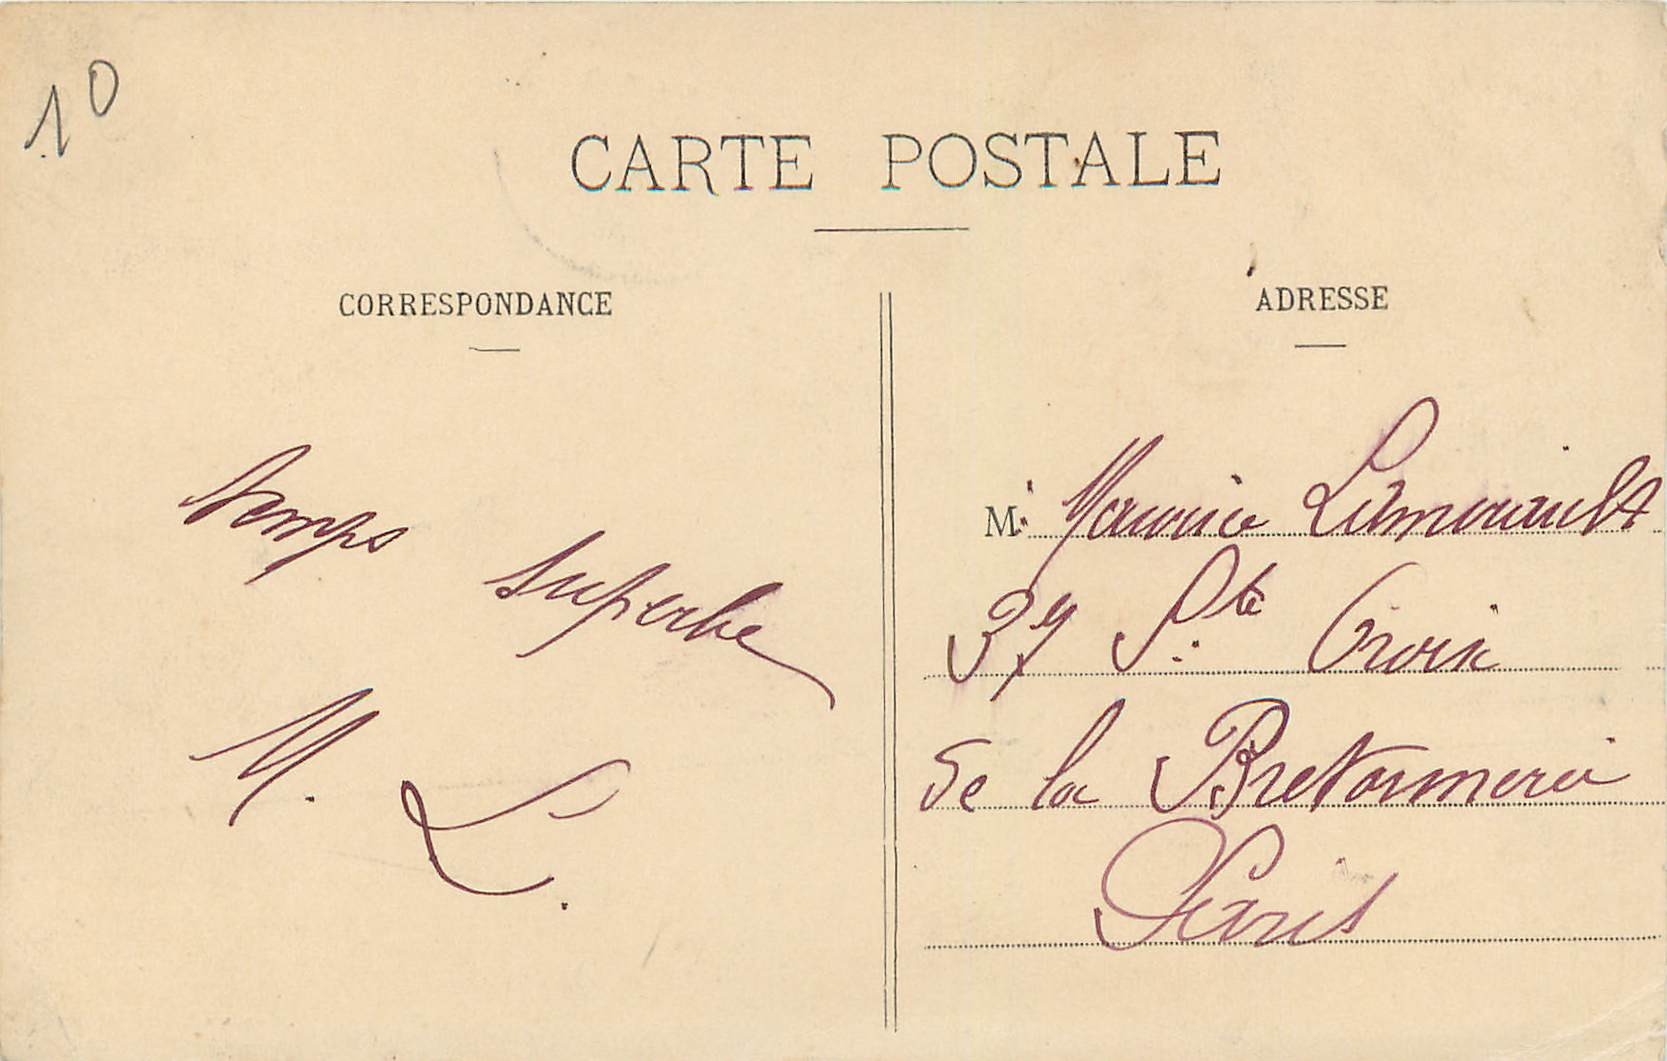 10
CARTE POSTALE
CORRESPONDANCE
temps superbe
M. L.
ADRESSE
M. Maurice
37 Ste Croix
de la Bretonnerie
Paris